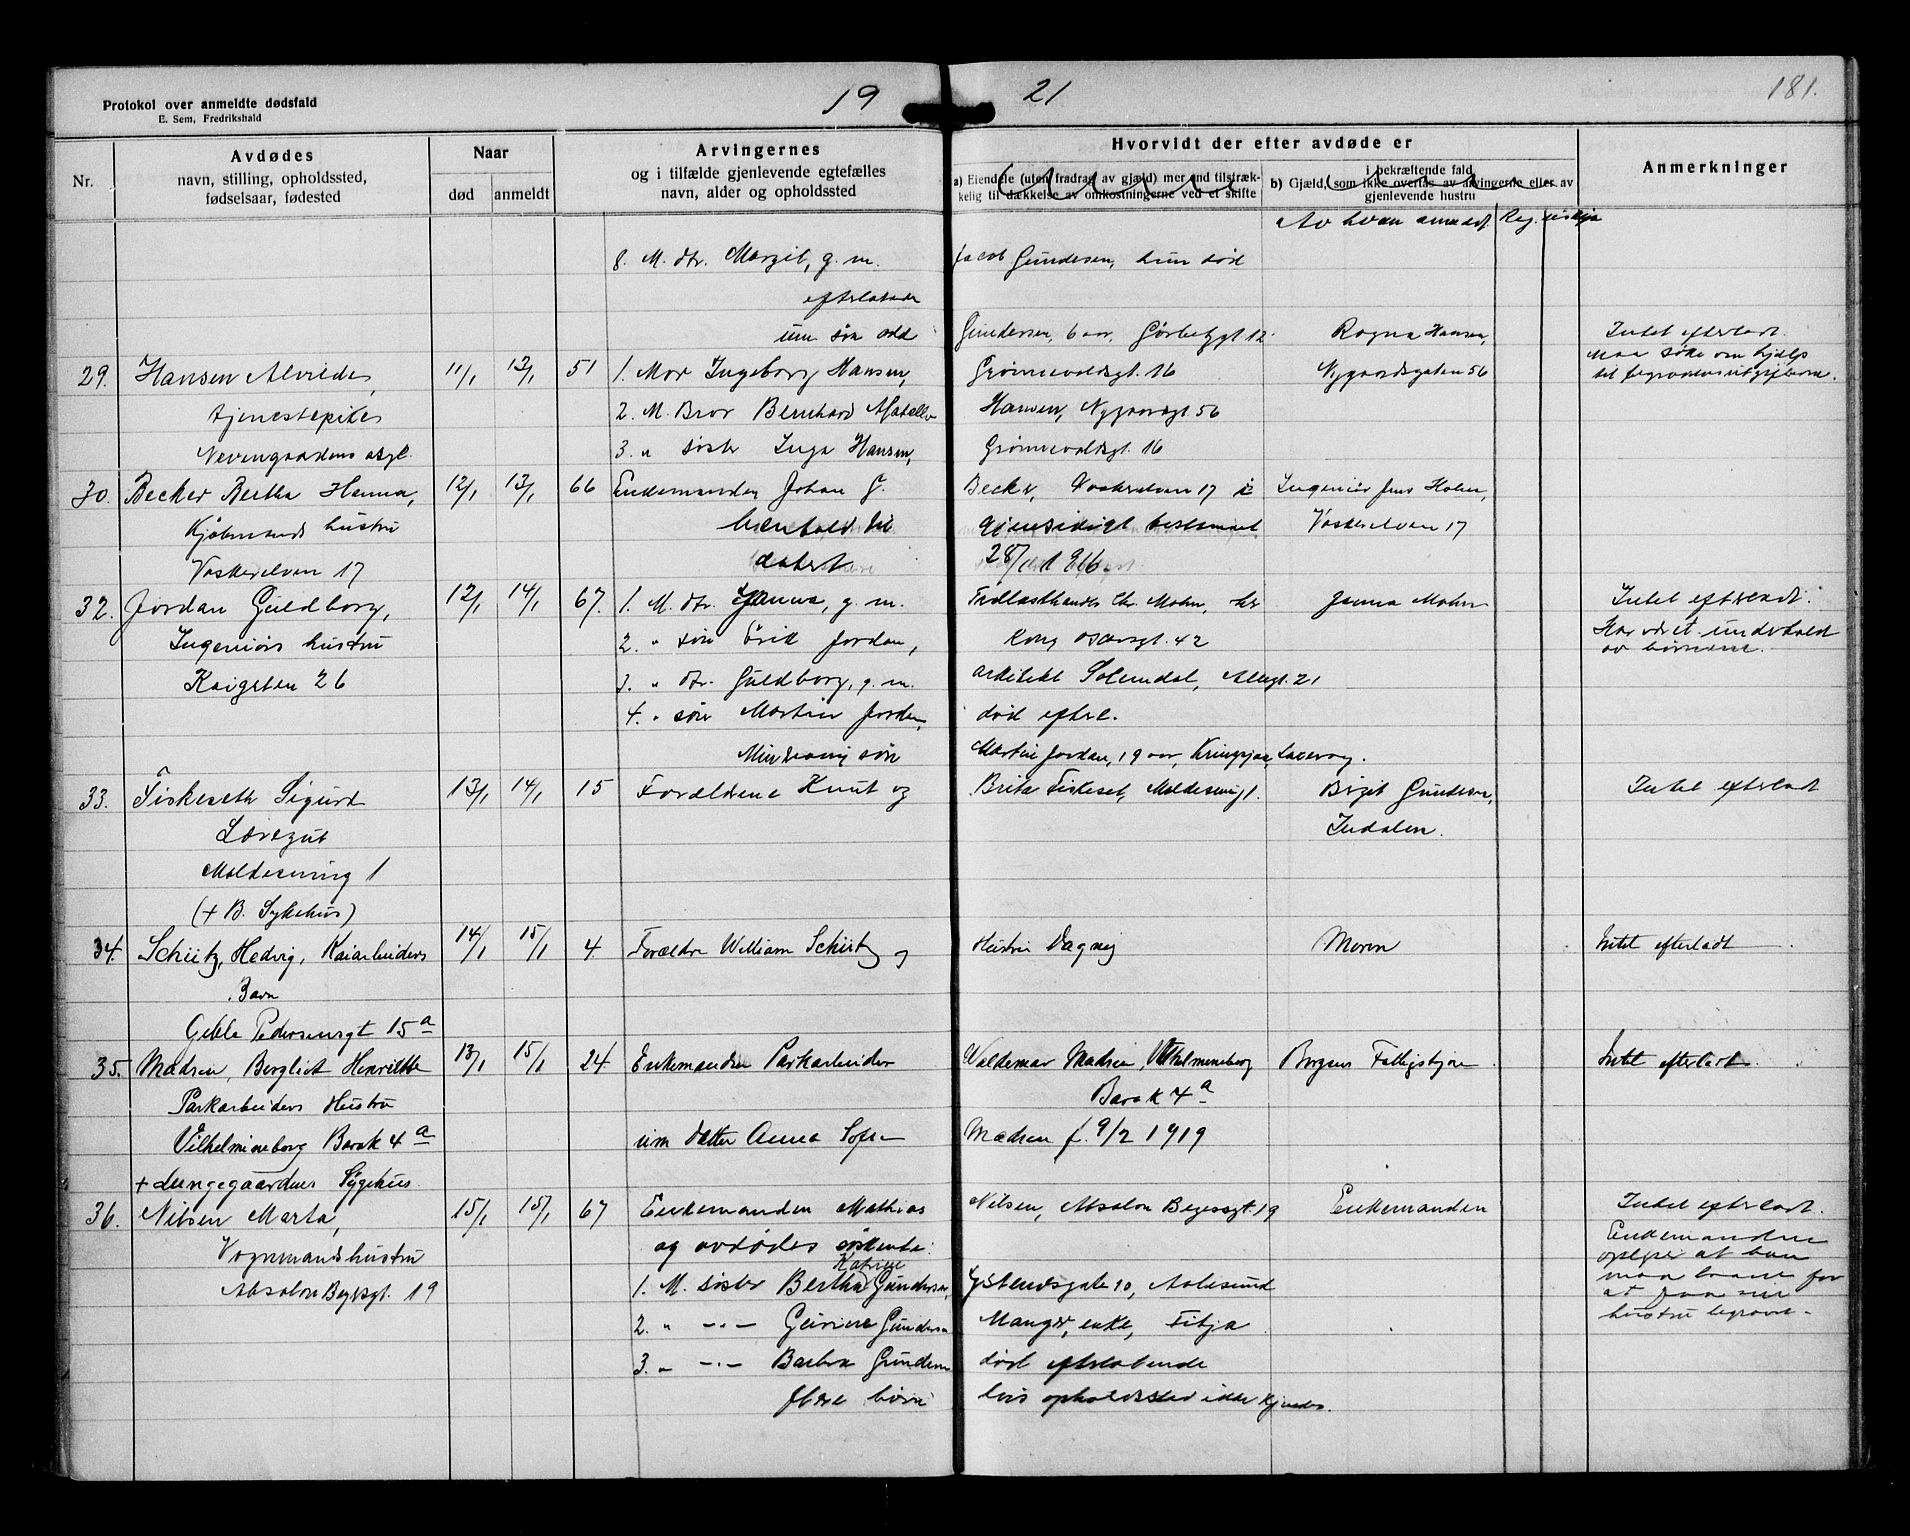 Protokol over anmeldte dødsfald
E. Sem, Fredrikshald
19 21
181.
Nr.
Avdødes
navn, stilling, opholdssted,
fødselsaar, fødested
Naar
død anmeldt
Arvingernes
og i tilfælde gjenlevende egtefælles
navn, alder og opholdssted
Hvorvidt der efter avdøde er
a) Eiendele (uten fradrag av gjæld) mer end tilstræk-
kelig til dækkelse av omkostningerne ved et skifte
b) Gjæld, i bekræftende fald
(som ikke overtas av arvingerne eller av
gjenlevende hustru
Anmerkninger
Av hvem anmeldt. Reg.
8. M. dtr. Margit, g. m. Jacob Gundersen, hun død
efterlatende
um søn Odd Gundersen, 6 aar, 12. Ragna Hansen, Intet efterladt.
29. Hansen Alvilde, 11/1 13/1 51 1. Mor Ingeborg Hansen, Grønnevoldsgt. 16 Nygaardsgaten 56 Maa søke om hjælp
til begravelsesutgifterne.
tjenestepike 2. M. Bror Bernhard Hansen, Nygaardsgt 56
Nevengaardens asyl. 3. " søster Inga Hansen, Grønnevoldsgt. 16
30. Becker Bertha Hanna, 12/1 13/1 66 Enkemanden Johan F. Becker, Vaskerelven 17 i Ingeniør Jens Holm,
Kjøbmands hustru henhold til gjensidigt testament Vaskerelven 17
Vaskerelven 17 datert 28/1 1916
32. Jordan Guldborg, 12/1 14/1 67. 1. M. dtr. Janna, g. m. Trælasthandler Chr. Mohn, hr Janna Mohn Intet efterladt.
Ingeniørs hustru 2. " søn Erik Jordan, Kong Oscarsgt. 42 Har været underhold
av børnene.
Kaigaten 26 3. " dtr. Guldborg, g. m. arkitekt Solemdal, Allegt. 21
4. " søn Martin Jordan, død efterl.
Mindreaarig søn Martin Jordan, 19 aar, Kringsjaa, Laxevaag.
33. Fiskeseth Sigurd 13/1 14/1 15 Forældrene Knut og Brita Fiskeset, Moldesmug 1. Birgit Gundersen, Intet efterladt
Læregut Indalen.
Moldesmug 1
(+ B. Sykehus)
34. Schütz, Hedvig, Kaiarbeiders 14/1 15/1 4 Forældre William Schütz og Hustru Dagny Moren Intet efterladt
Barn
Geble Pedersensgt 15a
35. Madsen, Bergliot Henriette 13/1 15/1 24 Enkemanden Parkarbeider Waldemar Madsen, Vilhelmineborg Bergens Fattigstyre Intet efterladt.
Parkarbeiders Hustru Barak 4a
Vilhelmineborg Barak 4a um datter Anna Sofie Madsen f. 9/2 1919
+ Lungegaardens Sygehus.
36. Nilsen Marta, 15/1 15/1 67 Enkemanden Mathias Nilsen, Absalon Beyersgt. 19 Enkemanden Intet efterladt.
Vognmandshustru og avdødes søskende: Enkemanden
opgir at han
Absalon Beyersgt. 19 1. M. søster Bertha Katrine Gundersen, 10, Aalesund maa laane for
at faa sin
2. " -"- Gundersen Manger, enke, Fitja hustru begravet.
3. " -"- Barbra Gundersen død efterlatende
flere børn hvis opholdssted ikke kjendes.